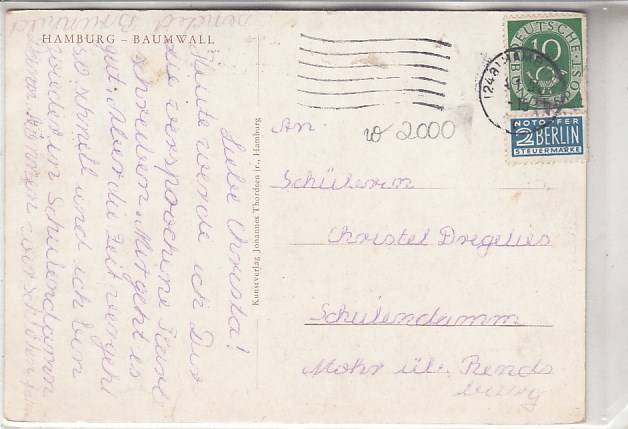 HAMBURG – BAUMWALL
Liebe Christa!
Heute werde ich Dir
die versprochene Karte
schreiben. Mir geht es
gut. Aber die Zeit vergeht
so schnell und ich bin
wieder in Schülendamm
Kunstverlag Johannes Thordsen jr., Hamburg
(24a) HAMBURG
DEUTSCHE
BUNDESPOST
10
NOTOPFER
2 BERLIN
STEUERMARKE
2000
An
Schülerin
Christel Dregelies
Schülendamm
Mohr üb. Rends
burg